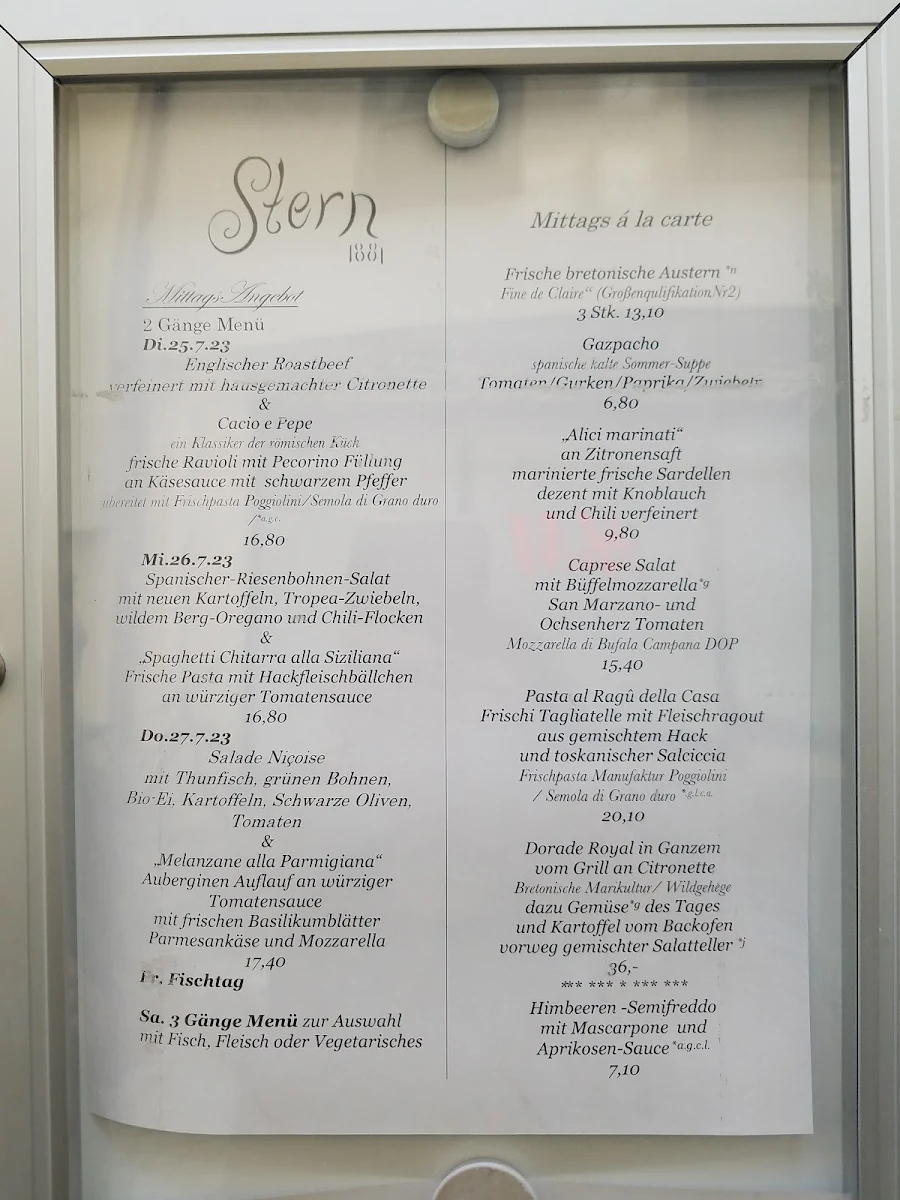 Stern
1881
Mittags Angebot
2 Gänge Menü
Di.25.7.23
Englischer Roastbeef
verfeinert mit hausgemachter Citronette
&
Cacio e Pepe
ein Klassiker der römischen Küch
frische Ravioli mit Pecorino Füllung
an Käsesauce mit schwarzem Pfeffer
ubereitet mit Frischpasta Poggiolini/Semola di Grano duro
/*a.g.c.
16,80
Mi.26.7.23
Spanischer-Riesenbohnen-Salat
mit neuen Kartoffeln, Tropea-Zwiebeln,
wildem Berg-Oregano und Chili-Flocken
&
„Spaghetti Chitarra alla Siziliana“
Frische Pasta mit Hackfleischbällchen
an würziger Tomatensauce
16,80
Do.27.7.23
Salade Niçoise
mit Thunfisch, grünen Bohnen,
Bio-Ei, Kartoffeln, Schwarze Oliven,
Tomaten
&
„Melanzane alla Parmigiana“
Auberginen Auflauf an würziger
Tomatensauce
mit frischen Basilikumblätter
Parmesankäse und Mozzarella
17,40
Fr. Fischtag
Sa. 3 Gänge Menü zur Auswahl
mit Fisch, Fleisch oder Vegetarisches
Mittags á la carte
Frische bretonische Austern *n
Fine de Claire“ (Großenqulifikation.Nr2)
3 Stk. 13,10
Gazpacho
spanische kalte Sommer-Suppe
Tomaten/Gurken/Paprika/Zwiebeln
6,80
„Alici marinati“
an Zitronensaft
marinierte frische Sardellen
dezent mit Knoblauch
und Chili verfeinert
9,80
Caprese Salat
mit Büffelmozzarella*g
San Marzano- und
Ochsenherz Tomaten
Mozzarella di Bufala Campana DOP
15,40
Pasta al Ragû della Casa
Frischi Tagliatelle mit Fleischragout
aus gemischtem Hack
und toskanischer Salciccia
Frischpasta Manufaktur Poggiolini
/ Semola di Grano duro *.g.l.c.a.
20,10
Dorade Royal in Ganzem
vom Grill an Citronette
Bretonische Marikultur/ Wildgehege
dazu Gemüse*g des Tages
und Kartoffel vom Backofen
vorweg gemischter Salatteller *j
36,-
*** *** * *** ***
Himbeeren -Semifreddo
mit Mascarpone und
Aprikosen-Sauce *a.g.c.l.
7,10